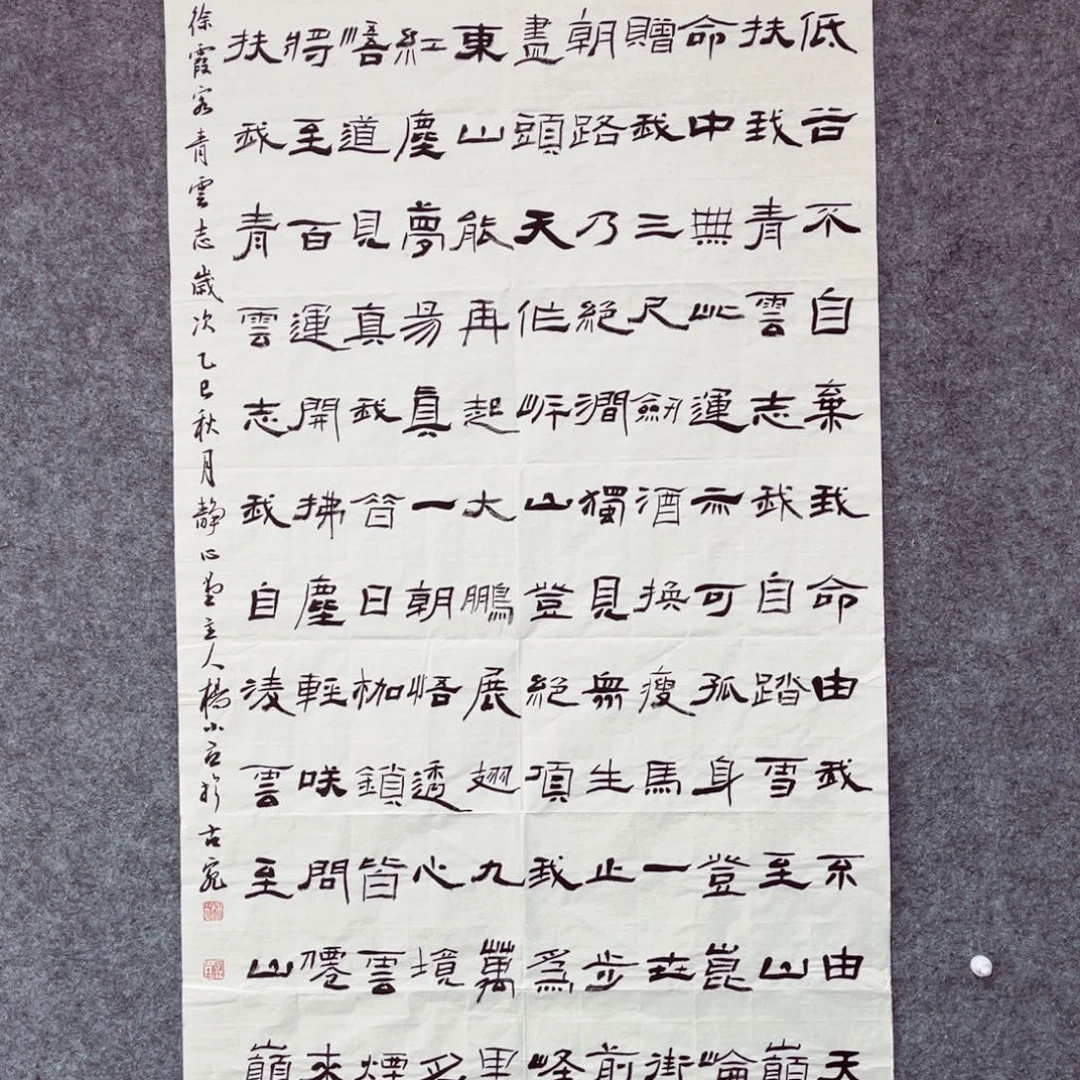 低谷不自棄我命由我不由天
扶我青雲志我自踏雪至山巔
命中無此運亦可孤身登崑崙
贈我三尺劍酒換瘦馬一世街
朝路乃絕澗獨見眾生止步前
盡頭天作岸山登絕頂我為峰
東山能再起大鵬展翅九萬里
紅塵夢易真一朝悟透心境
悟道見真我昔日枷鎖皆雲煙
將至百運開拂塵輕咲問僊來
扶我青雲志我自淩雲至山巔
徐霞客青雲志歲次乙巳秋月靜心堂主人楊小於古宛